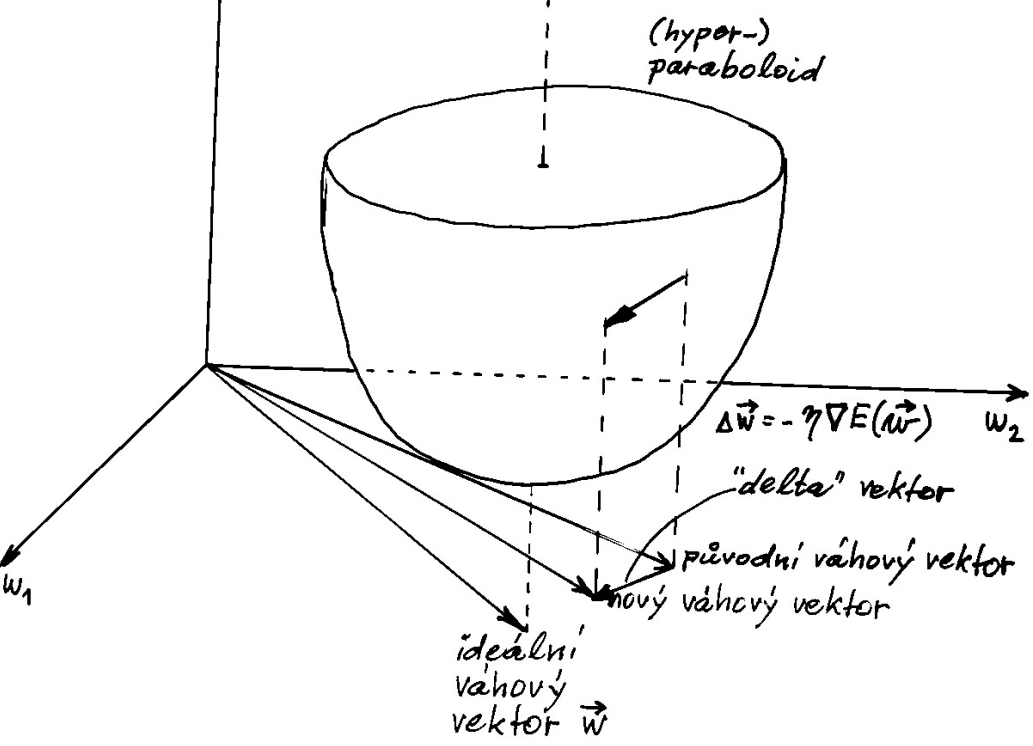 (hyper-)
paraboloid
Δw⃗ = - η ∇E(w⃗)
w₂
"delta" vektor
původní váhový vektor
nový váhový vektor
w₁
ideální
váhový
vektor w⃗